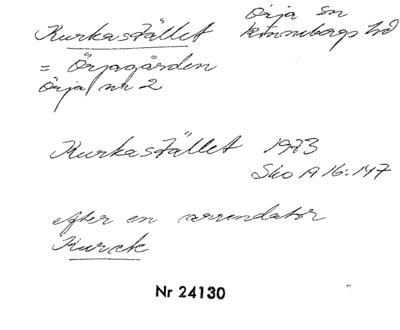 Kurkastället
Örja sn
Rönnebergs hd
= Örjagården
Örja nr 2
Kurkastället 1973
Sko A 16:147
efter en arrendator
Kurck
Nr 24130